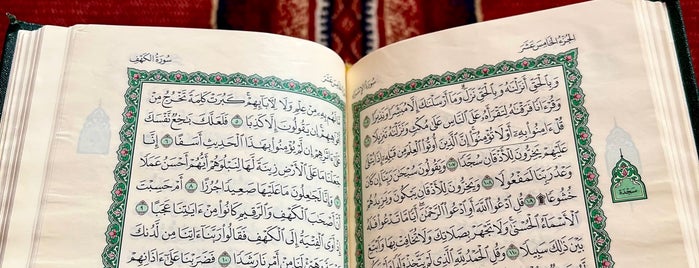 الجُزْءُ الخَامِسَ عَشَرَ
سُورَةُ الإِسْرَاءِ
وَبِٱلْحَقِّ أَنزَلْنَٰهُ وَبِٱلْحَقِّ نَزَلَ وَمَآ أَرْسَلْنَٰكَ إِلَّا مُبَشِّرًا وَنَذِيرًا ١٠٥
وَقُرْءَانًا فَرَقْنَٰهُ لِتَقْرَأَهُۥ عَلَى ٱلنَّاسِ عَلَىٰ مُكْثٍ وَنَزَّلْنَٰهُ تَنزِيلًا ١٠٦
قُلْ ءَامِنُوا۟ بِهِۦٓ أَوْ لَا تُؤْمِنُوٓا۟ إِنَّ ٱلَّذِينَ أُوتُوا۟ ٱلْعِلْمَ مِن قَبْلِهِۦٓ إِذَا يُتْلَىٰ
عَلَيْهِمْ يَخِرُّونَ لِلْأَذْقَانِ سُجَّدًا ١٠٧ وَيَقُولُونَ سُبْحَٰنَ رَبِّنَآ إِن كَانَ
وَعْدُ رَبِّنَا لَمَفْعُولًا ١٠٨ وَيَخِرُّونَ لِلْأَذْقَانِ يَبْكُونَ وَيَزِيدُهُمْ
خُشُوعًا ١٠٩ قُلِ ٱدْعُوا۟ ٱللَّهَ أَوِ ٱدْعُوا۟ ٱلرَّحْمَٰنَ أَيًّا مَّا تَدْعُوا۟ فَلَهُ
ٱلْأَسْمَآءُ ٱلْحُسْنَىٰ وَلَا تَجْهَرْ بِصَلَاتِكَ وَلَا تُخَافِتْ بِهَا وَٱبْتَغِ
بَيْنَ ذَٰلِكَ سَبِيلًا ١١٠ وَقُلِ ٱلْحَمْدُ لِلَّهِ ٱلَّذِى لَمْ يَتَّخِذْ وَلَدًا
سَجْدَة
سُورَةُ الكَهْفِ
مَّا لَهُم بِهِۦ مِنْ عِلْمٍ وَلَا لِءَابَآئِهِمْ كَبُرَتْ كَلِمَةً تَخْرُجُ مِنْ
أَفْوَٰهِهِمْ إِن يَقُولُونَ إِلَّا كَذِبًا ٥ فَلَعَلَّكَ بَٰخِعٌ نَّفْسَكَ
عَلَىٰٓ ءَاثَٰرِهِمْ إِن لَّمْ يُؤْمِنُوا۟ بِهَٰذَا ٱلْحَدِيثِ أَسَفًا ٦ إِنَّا
جَعَلْنَا مَا عَلَى ٱلْأَرْضِ زِينَةً لَّهَا لِنَبْلُوَهُمْ أَيُّهُمْ أَحْسَنُ عَمَلًا
٧ وَإِنَّا لَجَٰعِلُونَ مَا عَلَيْهَا صَعِيدًا جُرُزًا ٨ أَمْ حَسِبْتَ
أَنَّ أَصْحَٰبَ ٱلْكَهْفِ وَٱلرَّقِيمِ كَانُوا۟ مِنْ ءَايَٰتِنَا عَجَبًا ٩
إِذْ أَوَى ٱلْفِتْيَةُ إِلَى ٱلْكَهْفِ فَقَالُوا۟ رَبَّنَآ ءَاتِنَا مِن لَّدُنكَ
رَحْمَةً وَهَيِّئْ لَنَا مِنْ أَمْرِنَا رَشَدًا ١٠ فَضَرَبْنَا عَلَىٰٓ ءَاذَانِهِمْ